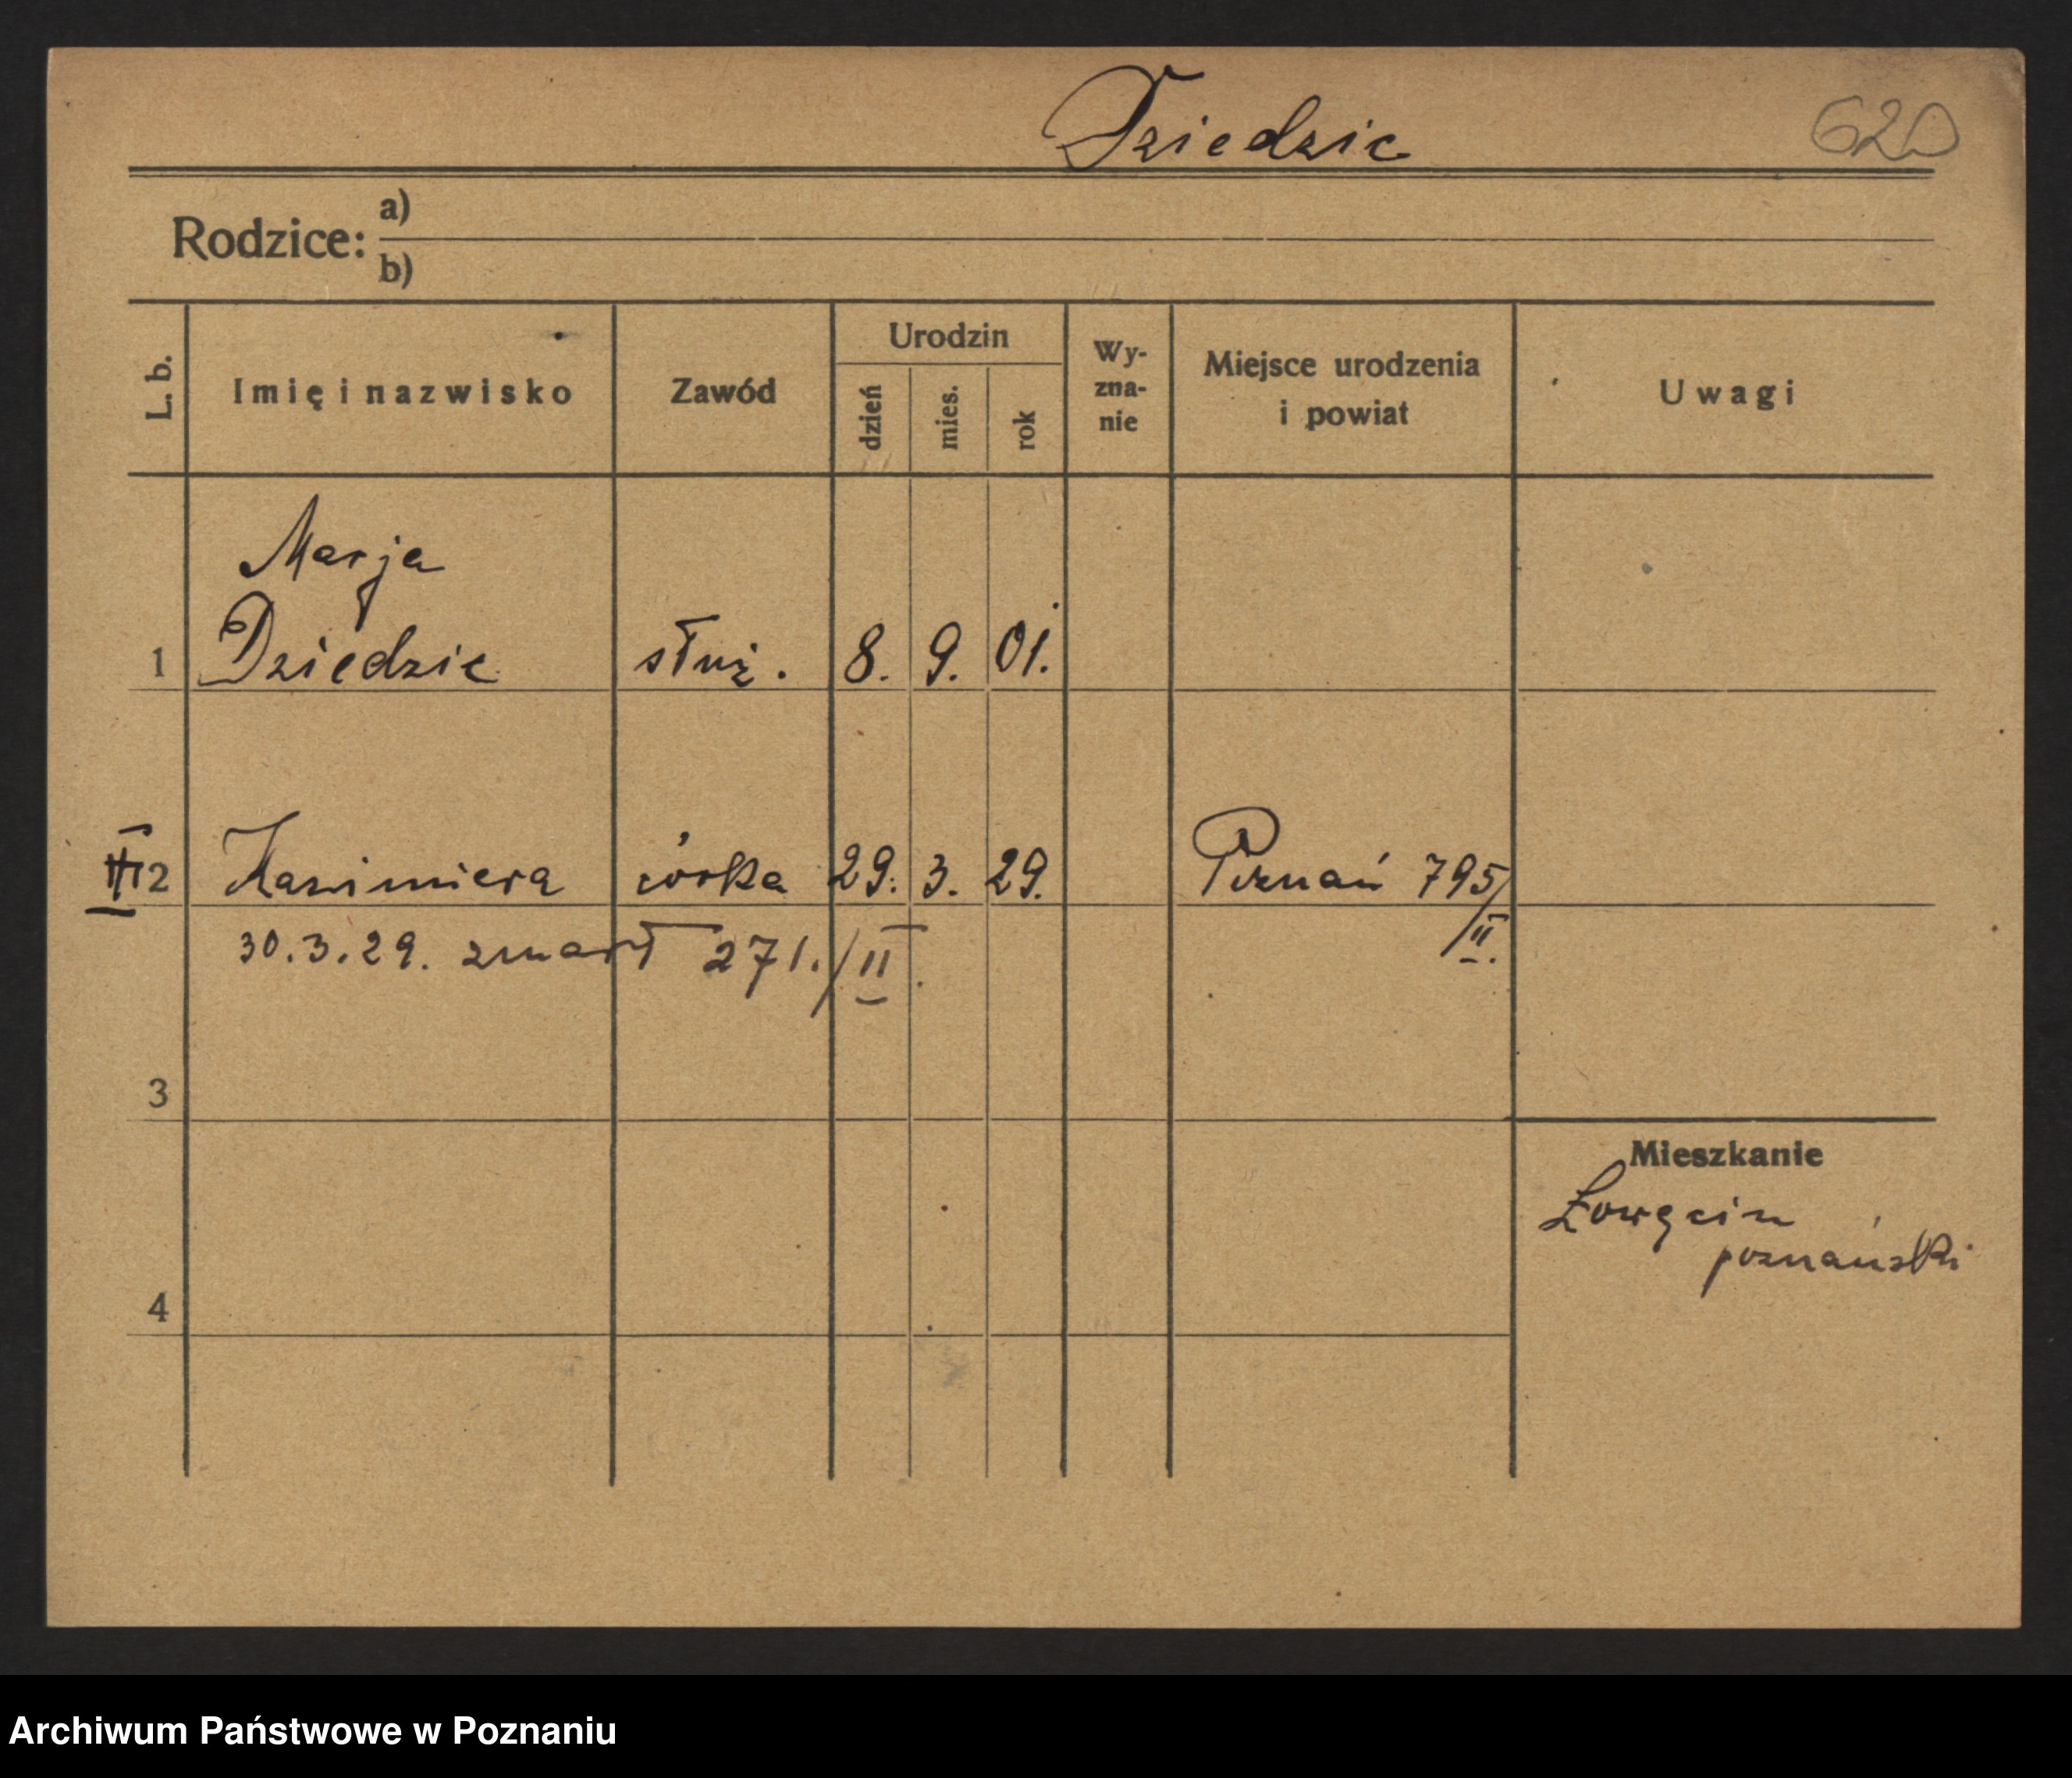 Dziedzic
620
Rodzice:
a)
b)
L. b.
Imię i nazwisko
Zawód
Urodzin
dzień
mies.
rok
Wy-
zna-
nie
Miejsce urodzenia
i powiat
Uwagi
Marja
1 Dziedzic służ. 8. 9. 01.
2 Kazimiera córka 29. 3. 29. Poznań 795/
II.
30.3.29. zmarł 271./II.
3
Mieszkanie
Łowęcin
poznański
4
Archiwum Państwowe w Poznaniu